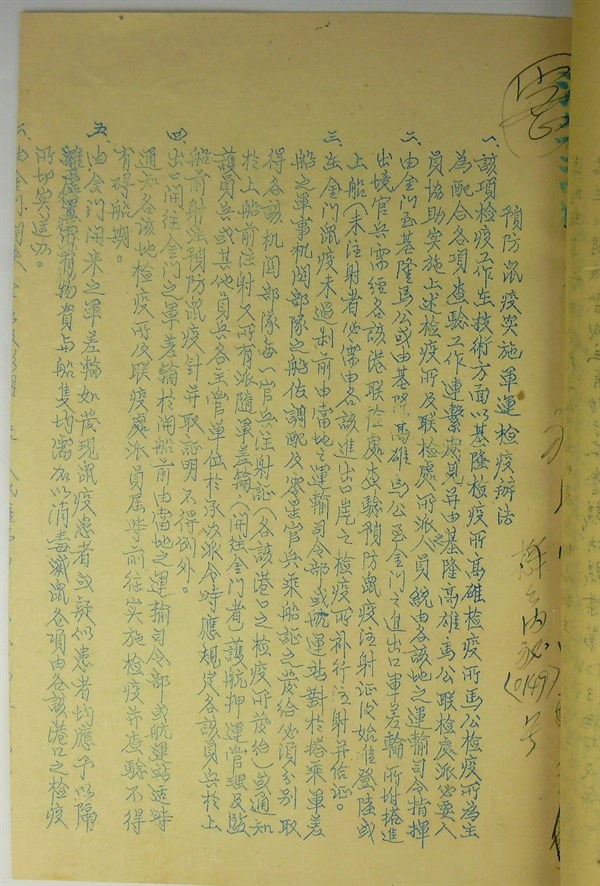 密
預防鼠疫实施軍運檢疫辦法
一、該項检疫工作在技術方面以基隆检疫所高雄检疫所馬公检疫所為主
為配合各項查驗工作連繫
員協助实施上述检疫所及联检處所派人員統由各該地之運輸司令指揮
二、由金门至基隆馬公或由基隆高雄馬公至金门之進出口軍差輪所附搭進
出境官兵需經各該港联检處查驗預防鼠疫注射証後始准登陸或
上船(未注射者必需由各該進出口岸之检疫所补行注射并给証。
三、在金门鼠疫未遏制前由當地之運輸司令部或航運站對於搭乘軍差
船之軍事机関部隊之船位調配及零星官兵乘船証之發给必須分别取
得各該机関部隊每一官兵注射証(各該港口之检疫所發给)或通知
於上船前注射又所有派隨軍差輪(開往金门者)護航押運管理及監
護員兵或其他員兵各主管单位於承办派令時應規定各該員兵於上
船前射注預防鼠疫針并取証明不得例外。
四、出口開往金门之軍差輪於開船前由當地之運輸司令部或航運站适時
通知各該地检疫所及联疫處派員屆時前往实施检疫并查驗不得
有碍船期。
五、由金门開来之軍差輪如發現鼠疫患者或疑似患者均應予以隔
離處置所有物資与船隻均需加以消毒滅鼠各項由各該港口之检疫
所切实遵办。
六、由金门開来
(0149)号